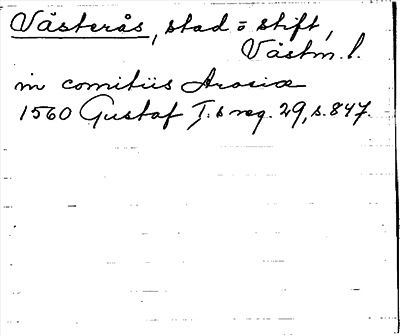 Västerås, stad o stift,
Västm. l.
in comitiis Arosiæ
1560 Gustaf I.s reg. 29, s. 847.